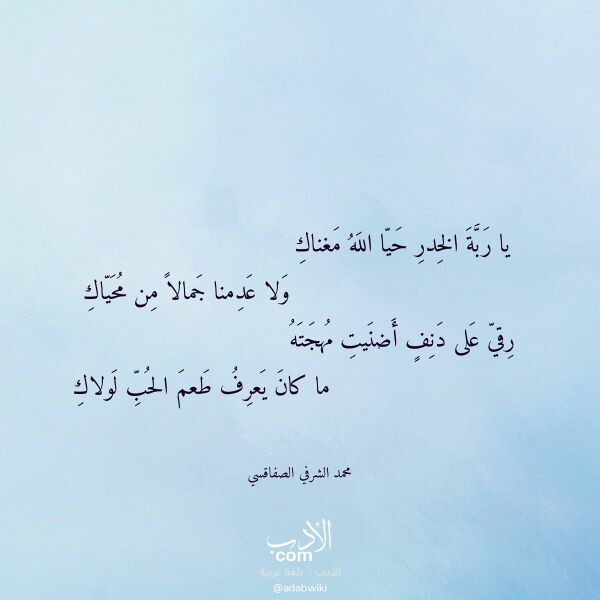 يا رَبَّةَ الخِدرِ حَيّا اللَهُ مَغناكِ
وَلا عَدِمنا جَمالاً مِن مُحَيّاكِ
رِقيّ عَلى دَنِفٍ أَضنَيتِ مُهجَتَهُ
ما كانَ يَعرِفُ طَعمَ الحُبِّ لَولاكِ
محمد الشرفي الصفاقسي
الأدب
com
الأدب .. بلغة عربية
@adabwiki